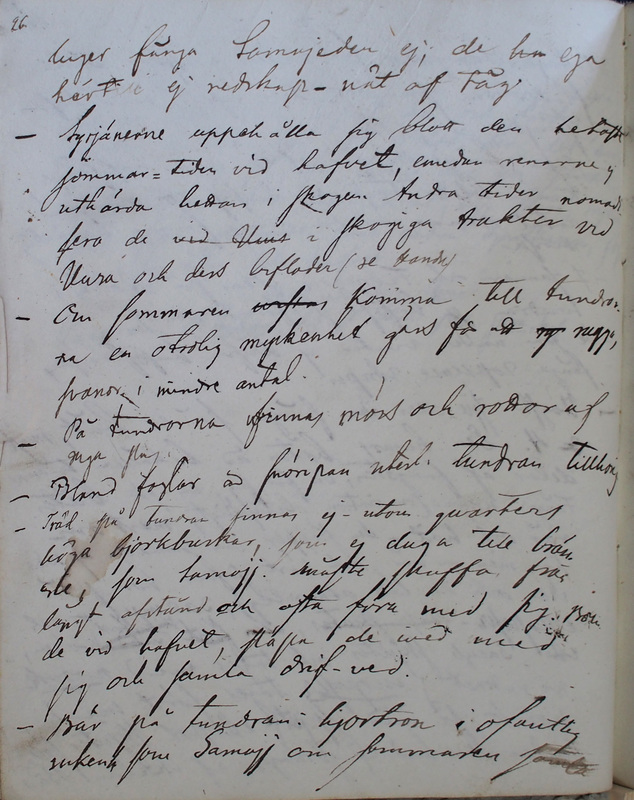 26.
fånga Samojeder ej, de ega
ej redskap - nät af tåg
— Syrjänerne uppehålla sig blott den
sommar=tiden vid hafvet, emedan renarne ej
uthärda hettan i skogen. Andra tider nomadi-
sera de vid i skogiga trakter vid
och dess bifloder (se
— Om sommaren komma till tundror-
na en otrolig myckenhet gäss för att rugga,
svanor i mindre antal.
— På tundrorna finnas möss och rottor af
slag.
— Bland foglar är snöripan tundran tillhörig
— Träd på tundran finnas ej - utom quarters
höga björkbuskar, som ej duga till brän
sle, som Samojj. måste skaffa från
långt afstånd och ofta föra med sig.
de vid hafvet, släpa de ved med
sig och samla drif-ved.
— Bär på tundran: hjortron i ofantlig
som Samojj om sommaren samla